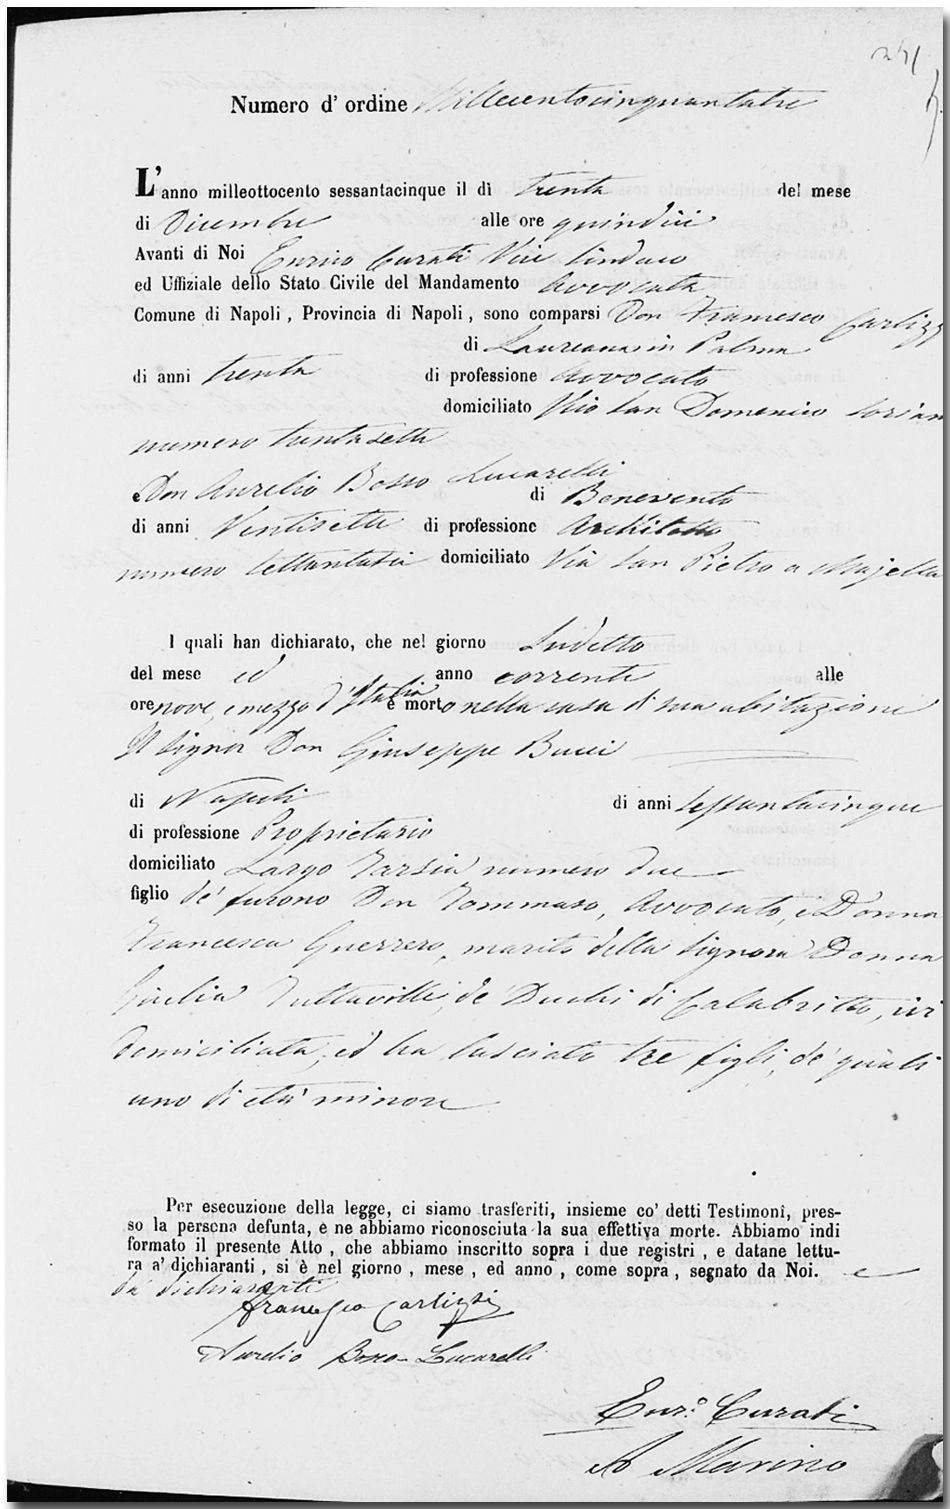 241
Numero d' ordine Millecentocinquantatre
L'anno milleottocento sessantacinque il dì trenta del mese
di Dicembre alle ore quindici
Avanti di Noi Enrico Curati Vice Sindaco
ed Uffiziale dello Stato Civile del Mandamento Avvocata
Comune di Napoli, Provincia di Napoli, sono comparsi Don Francesco Carlizzi
di Laureana in Palma
di anni trenta di professione Avvocato
domiciliato Vico San Domenico Sorian
numero trentasette
Don Aurelio Bosco Lucarelli
di Benevento
di anni Ventisette di professione Architetto
numero settantasei domiciliato Via San Pietro a Majella
I quali han dichiarato, che nel giorno Sudetto
del mese ed anno corrente alle
ore nove, e mezzo d'Italia è morto nella casa di sua abitazione
Il Signor Don Giuseppe Bucci
di Napoli di anni Sessantacinque
di professione Proprietario
domiciliato Largo Tarsia numero due
figlio de' furono Don Tommaso, Avvocato, e Donna
Francesca Guerrero, marito della Signora Donna
Giulia Tuttaville, de' Duchi di Calabritto, ivi
domiciliata, ed ha lasciato tre figli, de' quali
uno di età minore
Per esecuzione della legge, ci siamo trasferiti, insieme co' detti Testimonî, pres-
so la persona defunta, e ne abbiamo riconosciuta la sua effettiva morte. Abbiamo indi
formato il presente Atto, che abbiamo inscritto sopra i due registri, e datane lettu-
ra a' dichiaranti, si è nel giorno, mese, ed anno, come sopra, segnato da Noi. e
da' dichiaranti
Francesco Carlizzi
Aurelio Bosco-Lucarelli
Enr.º Curati
Marino